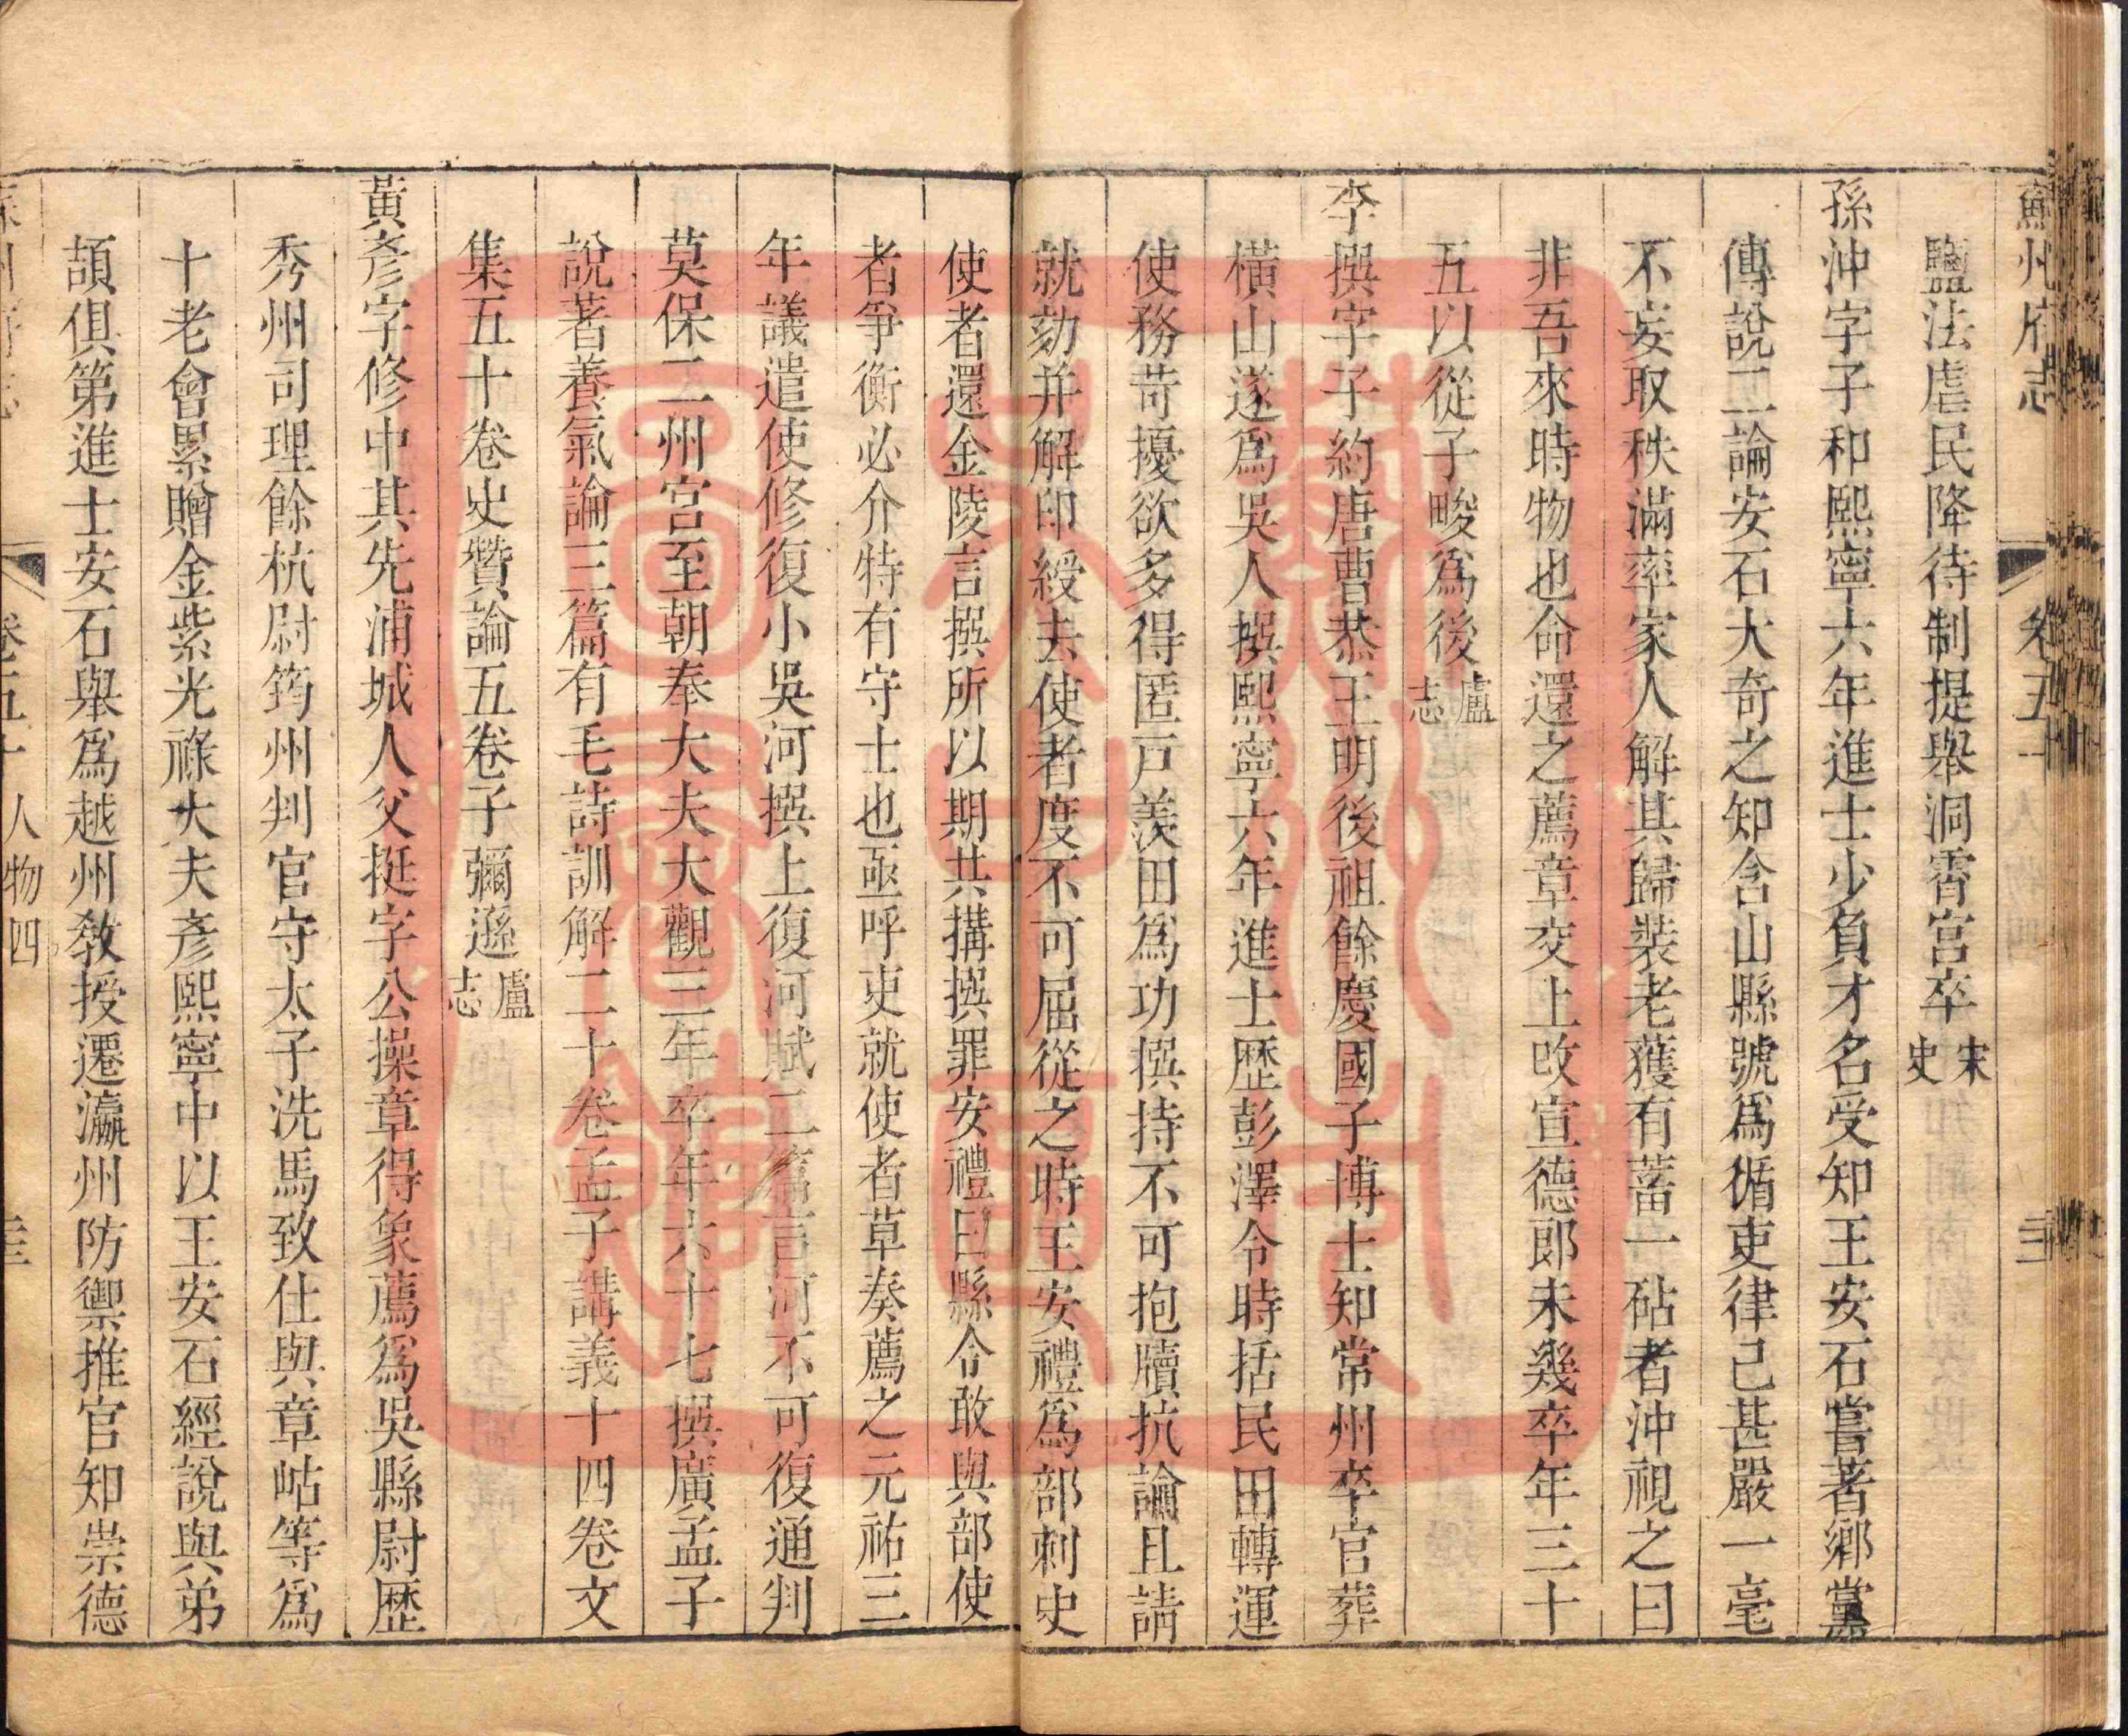 蘇州府志 卷五十 人物四 三
鹽法虐民降待制提舉洞霄宮卒宋史
孫沖字子和熙寧六年進士少負才名受知王安石嘗著鄉黨
傳說二論安石大奇之知含山縣號爲循吏律己甚嚴一毫
不妄取秩滿率家人解其歸裝老獲有蓄一砧者沖視之曰
非吾來時物也命還之薦章交上改宣德郎未幾卒年三十
五以從子畯爲後盧志
李撰字子約唐曹恭王明後祖餘慶國子博士知常州卒官葬
橫山遂爲吳人撰熙寧六年進士歷彭澤令時括民田轉運
使務苛擾欲多得匿戸羨田爲功撰持不可抱牘抗論且請
就劾并解印綬去使者度不可屈從之時王安禮爲部刺史
使者還金陵言撰所以期共搆撰罪安禮曰縣令敢與部使
者爭衡必介特有守士也亟呼吏就使者草奏薦之元祐三
年議遣使修復小吳河撰上復河賦二篇言河不可復通判
莫保二州宮至朝奉大夫大觀三年卒年六十七撰廣孟子
說著養氣論三篇有毛詩訓解二十卷孟子講義十四卷文
集五十卷史贊論五卷子彌遜盧志
黃彥字修中其先浦城人父挺字公操章得象薦爲吳縣尉歷
秀州司理餘杭尉筠州判官守太子洗馬致仕與章岵等爲
十老會累贈金紫光祿大夫彥熙寧中以王安石經說與弟
頡俱第進士安石舉爲越州敎授遷瀛州防禦推官知崇德
卷五十 人物四